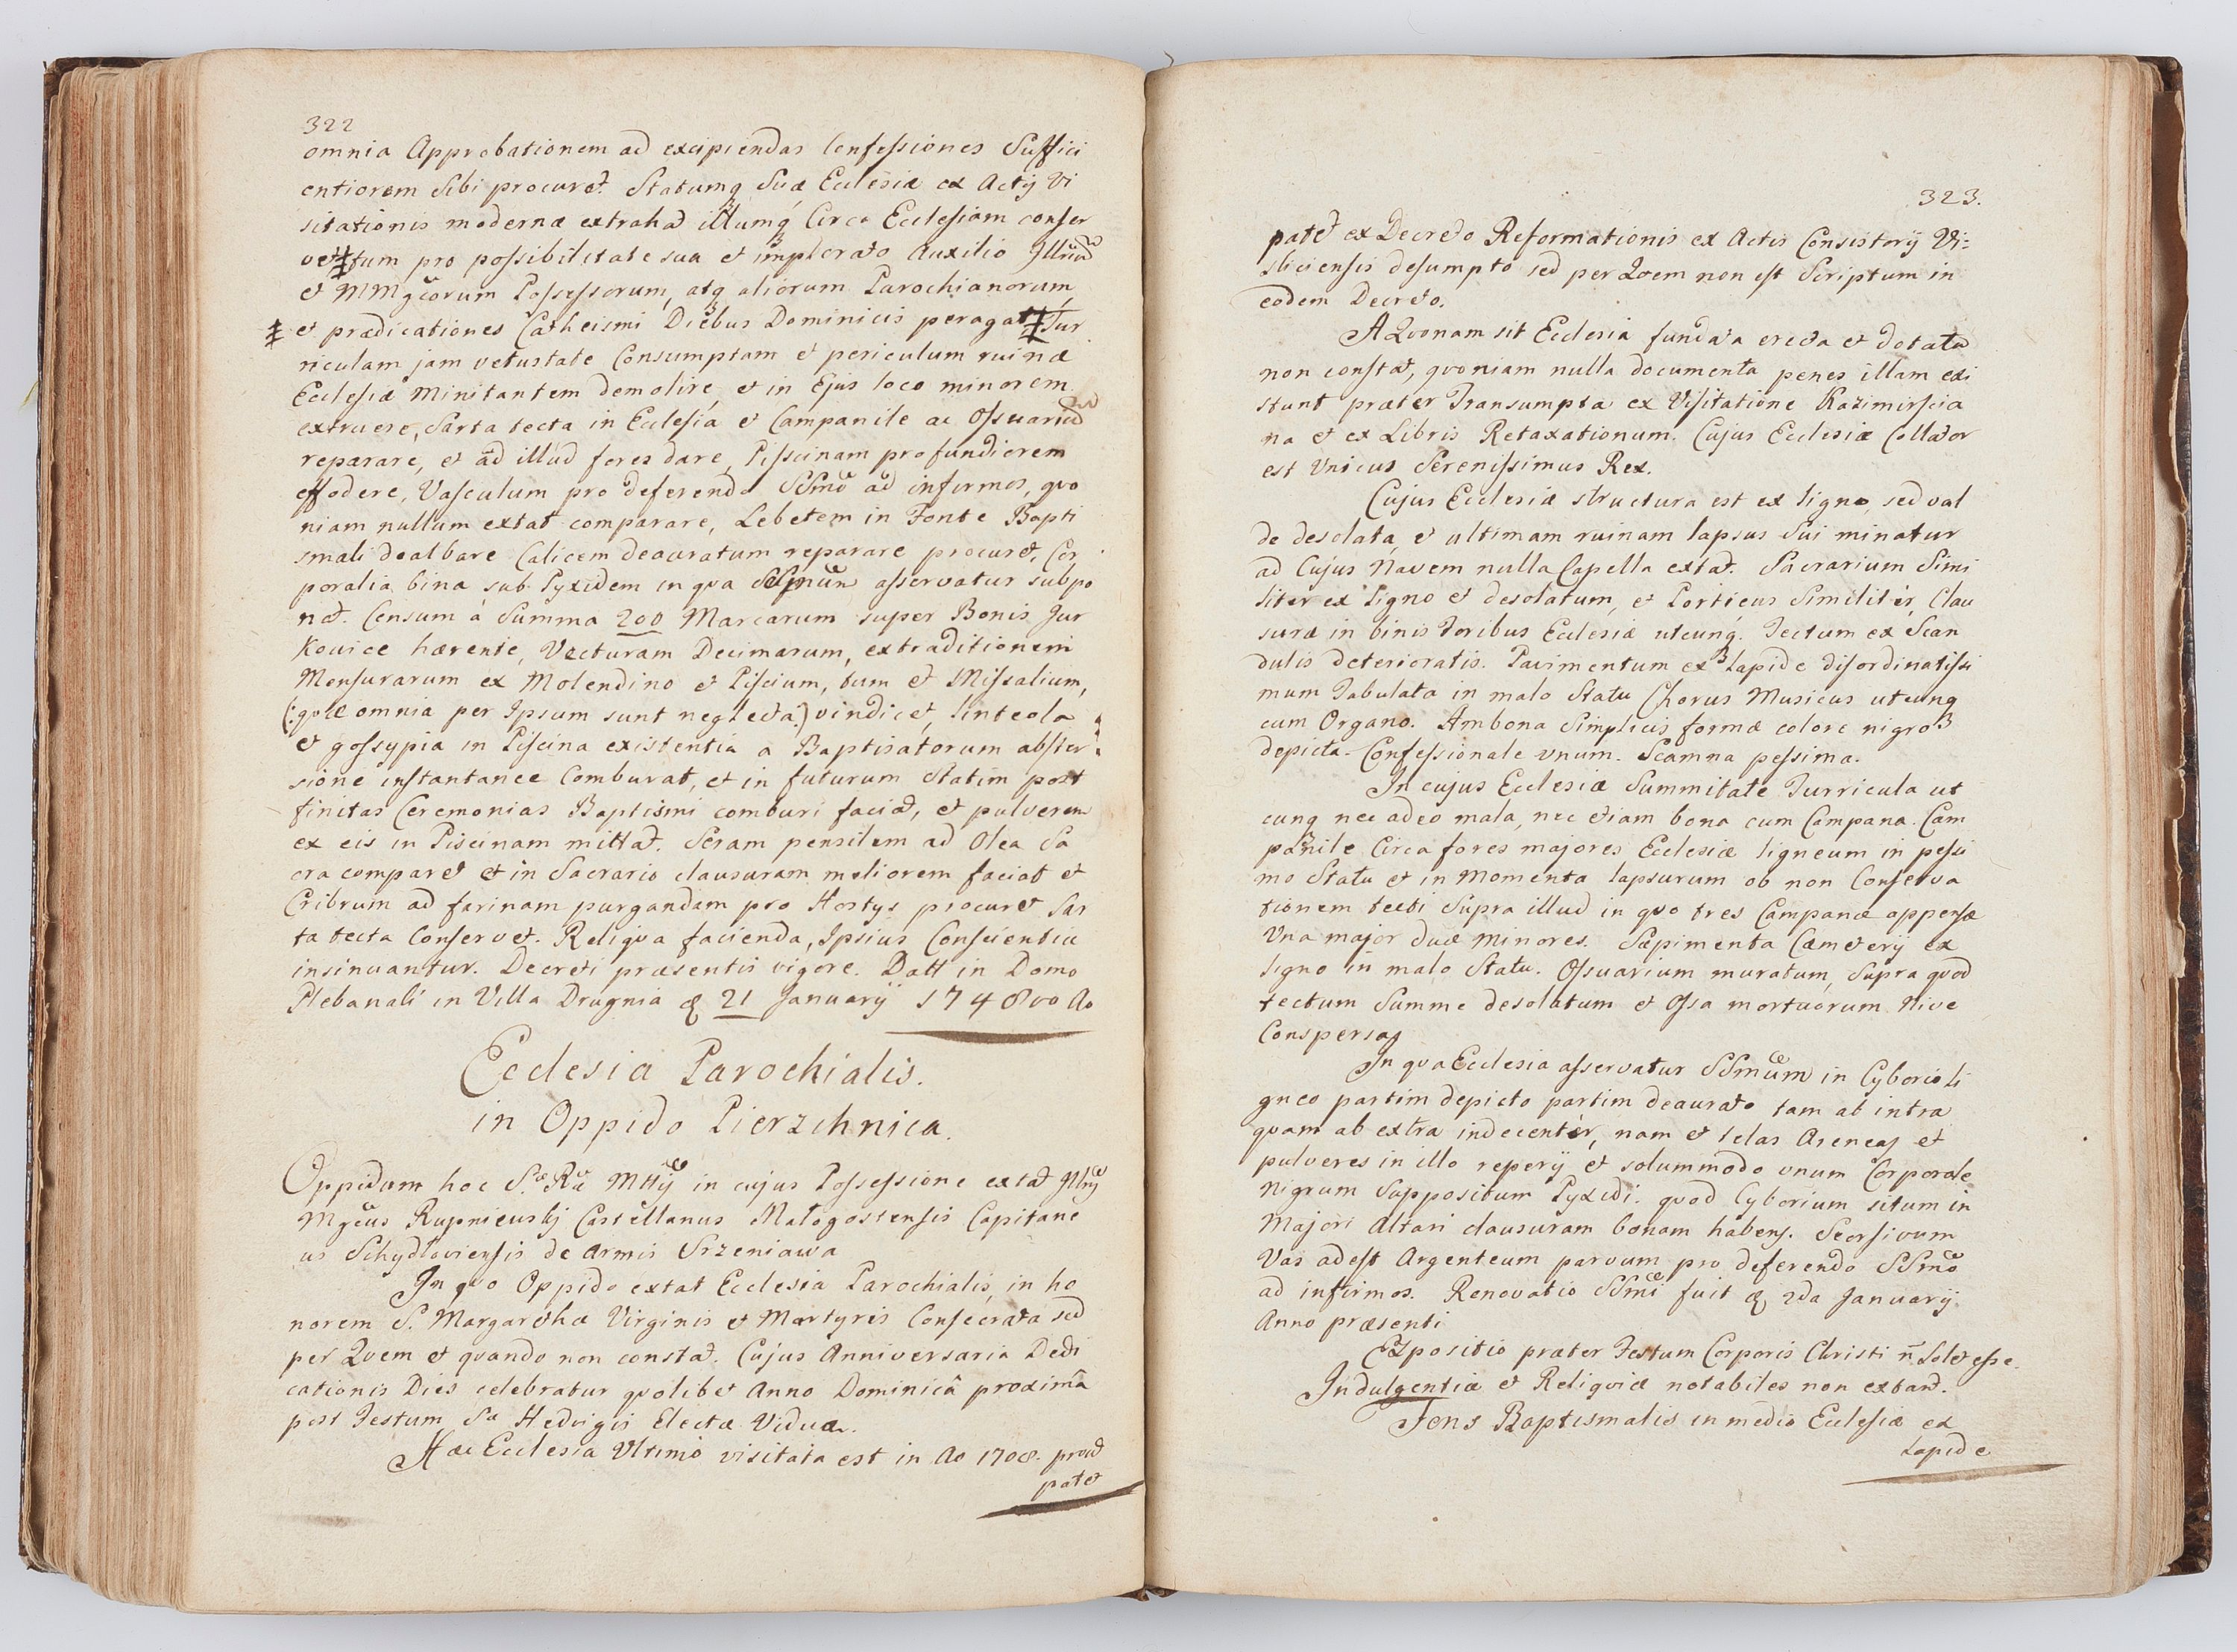 322
omnia Approbationem ad excipiendas Confessiones Suffici
entiorem Sibi procuret. Statumq Suæ Ecclesiæ ex Actis Vi
sitationis modernæ extrahat illumq Circa Ecclesiam conser
vet ‡ tum pro possibilitate sua et implorato Auxilio Illrium
et MMgcorum Possessorum, atq aliorum Parochianorum,
‡ et prædicationes Cathecismi Diebus Dominicis peragat ‡ Tur
riculam jam vetustate Consumptam et periculum ruinæ
Ecclesiæ Minitantem demolire, et in Ejus loco minorem
extruere, Sarta tecta in Ecclesia et Campanile ac Ossuarium
reparare, et ad illud fores dare, Pisscinam profundiorem
effodere, Vasculum pro deferendo SSmo ad infirmos, quo
niam nullum extat comparare, Lebetem in Fonte Bapti
smali dealbare Calicem deauratum reparare procuret, Cor
poralia bina sub Pyxidem in qva SSmum asservatur subpo
nat. Censum à Summa 200 Marcarum super Bonis Jur
kowice hærente, Vecturam Decimarum, extraditionem
Mensurarum ex Molendino et Piscium, tum et Missalium,
(: qvæ omnia per Ipsum sunt neglecta :) vindicet, linteola
et gossypia in Piscina existentia a Baptisatorum abster
sione instantanee Comburat, et in futurum Statim post
finitas Ceremonias Baptismi comburi faciat, et pulverem
ex eis in Piscinam mittat. Seram pensilem ad Olea Sa
cra comparet et in Sacrario clausuram meliorem faciat et
Cribrum ad farinam purgandam pro Hostys procuret Sar
ta tecta Conservet. Reliqva facienda, Ipsius Conscientiæ
insinuantur. Decreti præsentis vigore. Datt in Domo
Plebanali in Villa Drugnia d 21 Januarij 1748vo Ao
Ecclesia Parochialis.
in Oppido Pierzchnica.
Oppidum hoc S. Ræ Mttij in cujus Possessione extat Illris
Mgcus Rupniewskj Castellanus Małogostensis Capitane
us Schydłoviensis de Armis Srzeniawa
In qvo Oppido extat Ecclesia Parochialis, in ho
norem S. Margarethæ Virginis et Martyris Consecrata sed
per Qvem et qvando non constat. Cujus Anniversaria Dedi
cationis Dies celebratur qvolibet Anno Dominicâ proximâ
post Festum Sæ Hedvigis Electæ Viduæ.
Hæc Ecclesia Ultimò visitata est in Ao 1708. prout
patet
323.
patet ex Decreto Reformationis ex Actis Consistorij Vi=
sliciensis desumpto sed per Qvem non est Scriptum in
eodem Decreto.
A Qvonam sit Ecclesia fundata erecta et dotata
non constat, qvoniam nulla documenta penes illam exi
stunt præter Transumpta ex Visitatione Kazimirscia
na et ex Libris Retaxationum. Cujus Ecclesiæ Collator
est Unicus Serenissimus Rex.
Cujus Ecclesiæ structura est ex ligno, sed val
de desolata, et ultimam ruinam lapsus Sui minatur
ad Cujus Navem nulla Capella extat. Sacrarium Simi
liter ex ligno et desolatum, et Porticus Similitèr, Clau
suræ in binis Foribus Ecclesiæ utcunq. Tectum ex Scan
dulis deterioratis. Pavimentum ex Lapide disordinatissi
mum Tabulata in malo Statu Chorus Musicus utcunq
cum Organo. Ambona Simplicis formæ colore nigro
depicta. Confessionale unum. Scamna pessima.
In cujus Ecclesiæ Summitate Turricula ut
cunq nec adeo mala, nec etiam bona cum Campana. Cam
panile Circa fores majores Ecclesiæ ligneum in pessi
mo Statu et in Momenta lapsurum ob non Conserva
tionem tecti Supra illud in qvo tres Campanæ appensæ
Una major duæ minores. Sæpimenta Cæmeterij ex
ligno in malo Statu. Ossuarium muratum, Supra qvod
tectum Summe desolatum et Ossa mortuorum Nive
Conspersa
In qva Ecclesia asservatur SSmum in Cyborio li
gneo partim depicto partim deaurato tam ab intra
qvam ab extra indecentèr, nam et telas Areneas et
pulveres in illo reperij et solummodo unum Corporale
Nigrum Suppositum Pyxidi. qvod Cyborium situm in
Majori Altari clausuram bonam habens. Seorsivum
Vas adest Argenteum parvum pro deferendo SSmo
ad infirmos. Renovatio SSmi fuit d 2da Januarij
Anno præsenti
Expositio præter Festum Corporis Christi n̄ Solet esse.
Indulgentiæ et Reliqviæ notabiles non extant.
Fons Baptismalis in medio Ecclesiæ ex
Lapide